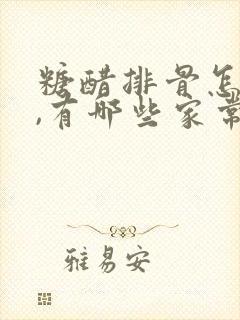 糖醋排骨怎
,有哪些家常
雅易安